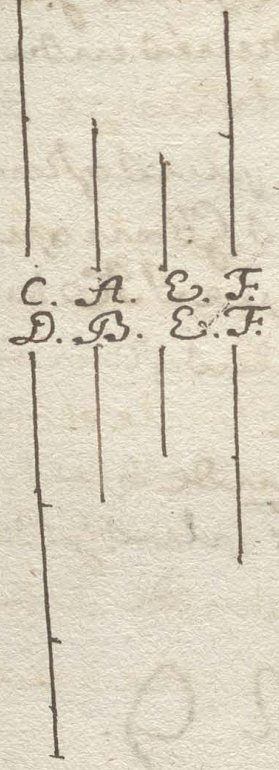 C. A. E. F.
D. B. E. F.